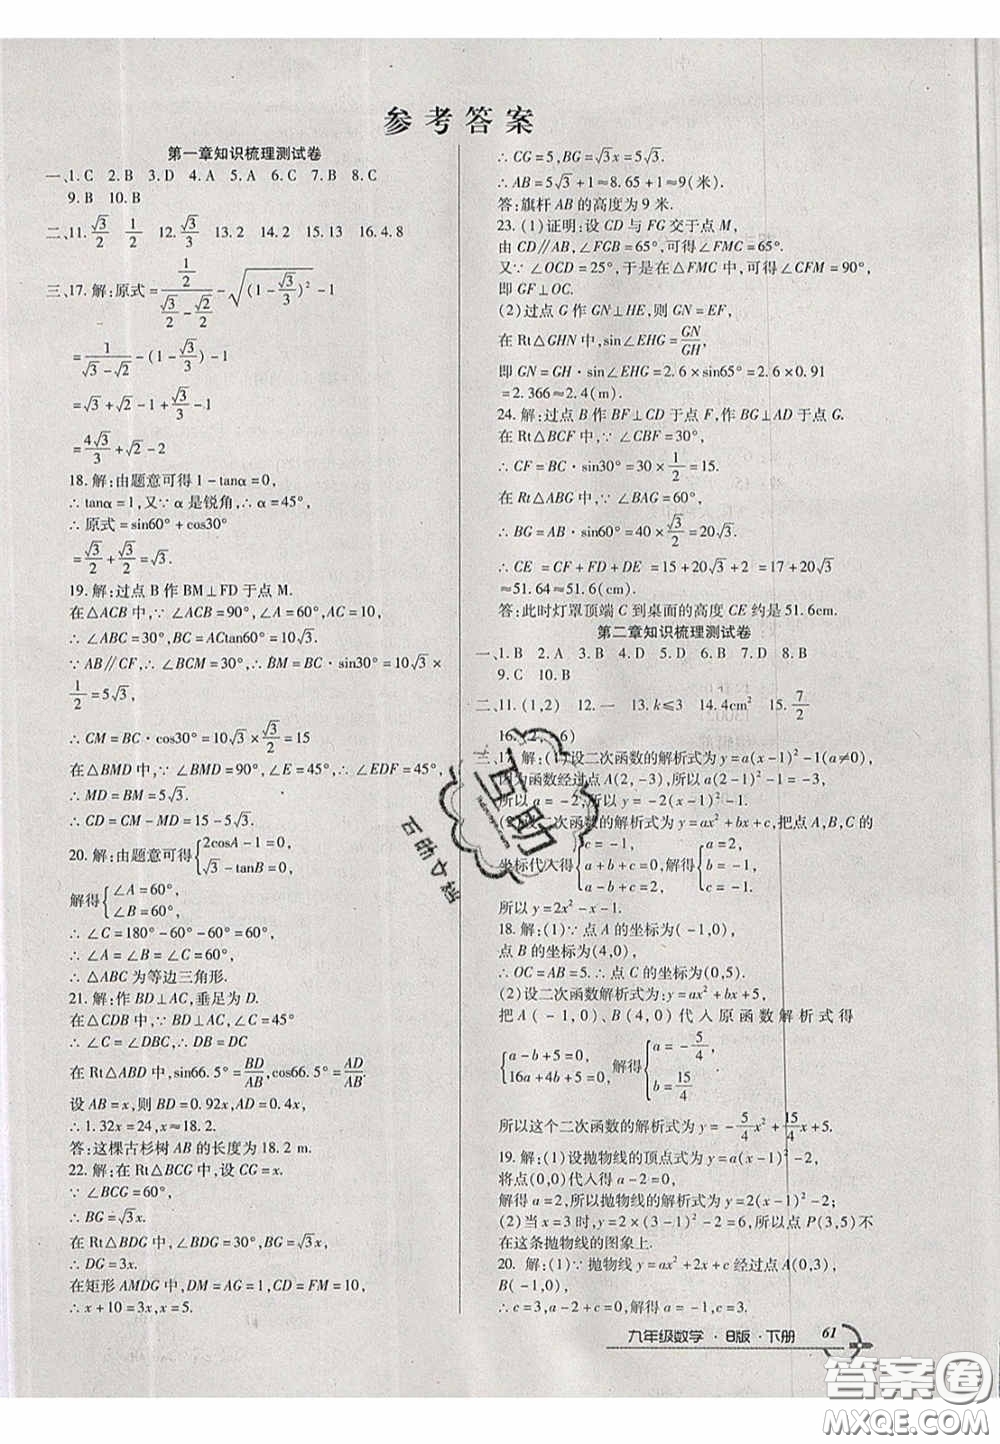 参考答案
第一章知识梳理测试卷
一、1. C 2. B 3. D 4. A 5. A 6. C 7. B 8. C
9. B 10. B
二、11. √3/2 1/2 12. √3/3 13. 2 14. 2 15. 13 16. 4.8
三、17. 解:原式=(1/2)/(√3/2-√2/2)-√((1-√3/3)²)-1
=1/(√3-√2)-(1-√3/3)-1
=√3+√2-1+√3/3-1
=4√3/3+√2-2
18. 解:由题意可得1-tanα=0,
∴tanα=1,又∵α是锐角,∴α=45°,
∴原式=sin60°+cos30°
=√3/2+√3/2=√3.
19. 解:过点B作BM⊥FD于点M.
在△ACB中,∵∠ACB=90°,∠A=60°,AC=10,
∴∠ABC=30°,BC=ACtan60°=10√3,
∵AB∥CF,∴∠BCM=30°.∴BM=BC·sin30°=10√3×
1/2=5√3,
∴CM=BC·cos30°=10√3×√3/2=15
在△BMD中,∵∠BMD=90°,∠E=45°,∴∠EDF=45°,
∴MD=BM=5√3,
∴CD=CM-MD=15-5√3.
20. 解:由题意可得{2cosA-1=0, √3-tanB=0,
解得{∠A=60°, ∠B=60°,
∴∠C=180°-60°-60°=60°,
∴∠A=∠B=∠C=60°,
∴△ABC为等边三角形.
21. 解:作BD⊥AC,垂足为D.
在△CDB中,∵∠C=45°,
∴∠C=∠DBC,∴DB=DC
在Rt△ABD中,sin66.5°=BD/AB,cos66.5°=AD/AB,
设AB=x,则BD=0.92x,AD=0.4x,
∴1.32x=24,x≈18.2.
答:这棵古杉树AB的长度为18.2m.
22. 解:在Rt△BCG中,设CG=x.
∵∠BCG=60°,
∴BG=√3x.
在Rt△BDG中,∵∠BDG=30°,BG=√3x,
∴DG=3x.
在矩形AMDG中,DM=AG=1,CD=FM=10,
∴x+10=3x,x=5.
∴CG=5,BG=√3x=5√3.
∴AB=5√3+1≈8.65+1≈9(米).
答:旗杆AB的高度为9米.
23. (1)证明:设CD与FG交于点M,
由CD∥AB,∠FGB=65°,可得∠FMC=65°.
又∵∠OCD=25°,于是在△FMC中,可得∠CFM=90°,
即GF⊥OC.
(2)过点G作GN⊥HE,则GN=EF,
在Rt△GHN中,sin∠EHG=GN/GH,
即GN=GH·sin∠EHG=2.6×sin65°≈2.6×0.91
=2.366≈2.4(m).
24. 解:过点B作BF⊥CD于点F,作BG⊥AD于点G.
在Rt△BCF中,∵∠CBF=30°,
∴CF=BC·sin30°=30×1/2=15.
在Rt△ABG中,∵∠BAG=60°,
∴BG=AB·sin60°=40×√3/2=20√3.
∴CE=CF+FD+DE=15+20√3+2=17+20√3
≈51.64≈51.6(cm).
答:此时灯罩顶端C到桌面的高度CE约是51.6cm.
第二章知识梳理测试卷
一、1. B 2. A 3. B 4. D 5. D 6. B 7. D 8. B
9. C 10. B
二、11. (1,2) 12. 一 13. k≤3 14. 4cm² 15. 7/2
16. (2, 6)
三、17. 解:(1)设二次函数的解析式为y=a(x-1)²-1(a≠0),
因为函数经过点A(2,-3),所以a(2-1)²-1=-3,
所以a=-2,所以y=-2(x-1)²-1.
(2)设二次函数的解析式为y=ax²+bx+c,把点A,B,C的
坐标代入得{c=-1, a+b+c=0, a-b+c=2,解得{a=2, b=-1, c=-1,
所以y=2x²-x-1.
18. 解:(1)∵点A的坐标为(-1,0),
点B的坐标为(4,0),
∴OC=AB=5.∴点C的坐标为(0,5).
(2)设二次函数解析式为:y=ax²+bx+5,
把A(-1,0)、B(4,0)代入原函数解析式得
{a-b+5=0, 16a+4b+5=0, 解得{a=-5/4, b=15/4
所以这个二次函数的解析式为y=-5/4x²+15/4x+5.
19. 解:(1)设抛物线的顶点式为y=a(x-1)²-2,
将点(0,0)代入得a-2=0,
解得a=2,所以抛物线的解析式为y=2(x-1)²-2;
(2)当x=3时,y=2(3-1)²-2=6,所以点P(3,5)不
在这条抛物线的图象上.
20. 解:(1)∵抛物线y=ax²+2x+c经过点A(0,3),
B(-1,0),
∴c=3,a-2+c=0,解得a=-1,c=3.
九年级数学·B版·下册 61
互助
互助文档
答案圈
MXQE.COM